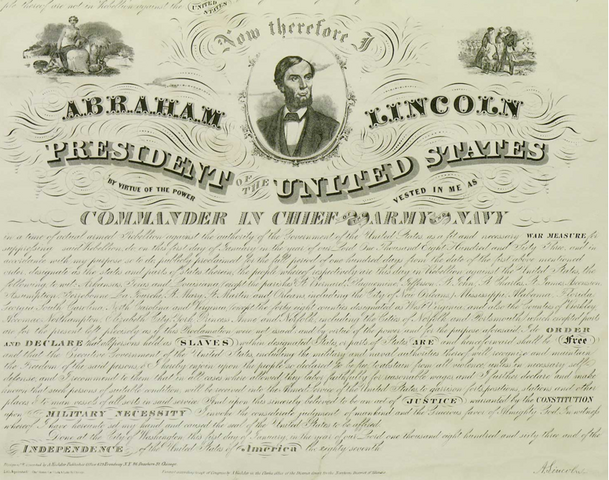 ple thereof are not in Rebellion against the UNITED STATES
Now therefore I
ABRAHAM LINCOLN
PRESIDENT OF THE UNITED STATES
BY VIRTUE OF THE POWER VESTED IN ME AS
COMMANDER IN CHIEF OF THE ARMY AND NAVY
in a time of actual armed Rebellion against the authority of the Government of the United States as a fit and necessary WAR MEASURE for
suppressing said Rebellion, do on this first day of January in the year of our Lord One Thousand Eight Hundred and Sixty Three, and in
accordance with my purpose so to do publicly proclaimed for the full period of one hundred days from the date of the first above mentioned
order designate as the states and parts of States therein the people whereof respectively are this day in Rebellion against the United States the
following to wit Arkansas, Texas and Louisiana except the parishes
Assumption Terrebonne La Fourche St. Mary St. Martin and Orleans, including the City of New Orleans, Mississippi, Alabama, Florida,
Georgia, South Carolina, North Carolina, and Virginia, except the forty eight counties designated as West Virginia, and also the Counties of Berkley,
Accomac, Northampton, Elizabeth City, York, Princess Anne and Norfolk, including the Cities of Norfolk and Portsmouth, which excepted parts
are for the present left precisely as if this Proclamation were not issued, and by virtue of the power and for the purpose aforesaid I do ORDER
AND DECLARE that all persons held as SLAVES within designated States or parts of States ARE and henceforward shall be Free
and that the Executive Government of the United States, including the military and naval authorities thereof will recognize and maintain
the freedom of the said persons & I hereby enjoin upon the people so declared to be free to abstain from all violence unless in necessary self
defense and I recommend to them that in all cases when allowed they labor faithfully for reasonable wages, and I further declare and make
known that such persons of suitable condition will be received into the armed service of the United States to garrison forts, positions, stations and other
places & to man vessels of all sorts in said service. And upon this sincerely believed to be an act of JUSTICE warranted by the CONSTITUTION
upon MILITARY NECESSITY I invoke the considerate judgment of mankind and the Gracious favor of Almighty God. In witness
whereof I have hereunto set my hand and caused the seal of the United States to be affixed.
Done at the City of Washington this first day of January, in the year of our Lord one thousand eight hundred and sixty three and of the
INDEPENDENCE of the United States of America the eighty seventh
A. Lincoln